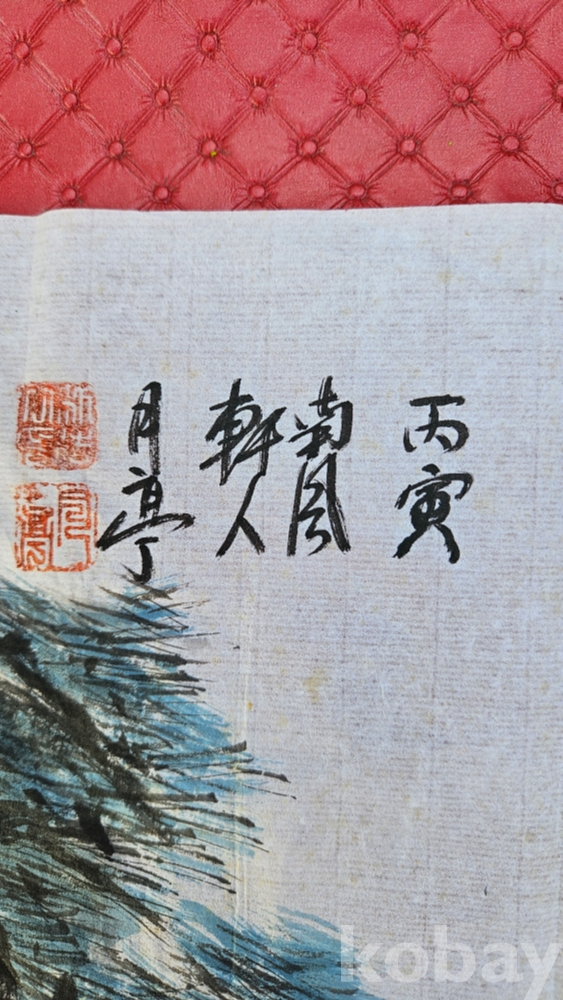 丙寅
南風
軒人
月亭
kobay